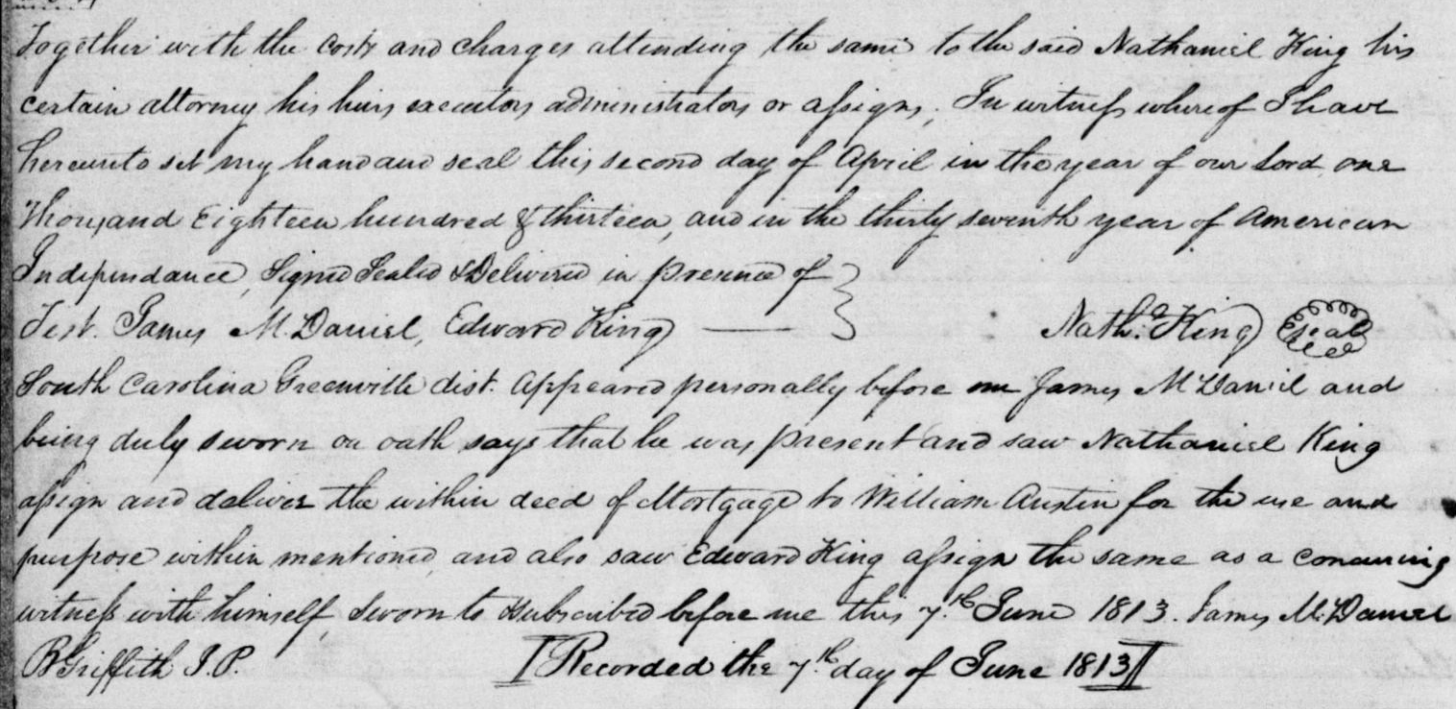 Together with the costs and charges attending the same to the said Nathaniel King his
certain attorney his heirs executors administrators or assigns, In witness whereof I have
hereunto set my hand and seal this second day of April in the year of our Lord one
Thousand Eighteen hundred & thirteen, and in the thirty seventh year of American
Independance, Signed Sealed & Delivered in presence of
Test. James McDaniel, Edward King Nathl. King Seal
South Carolina Greenville dist. Appeared personally before me James McDaniel and
being duly sworn on oath says that he was present and saw Nathaniel King
assign and deliver the within deed of Mortgage to William Austin for the use and
purpose within mentioned and also saw Edward King assign the same as a concuring
witness with himself, Sworn to & subscribed before me this 7th June 1813. James McDaniel
B Griffith J. P. Recorded the 7th day of June 1813